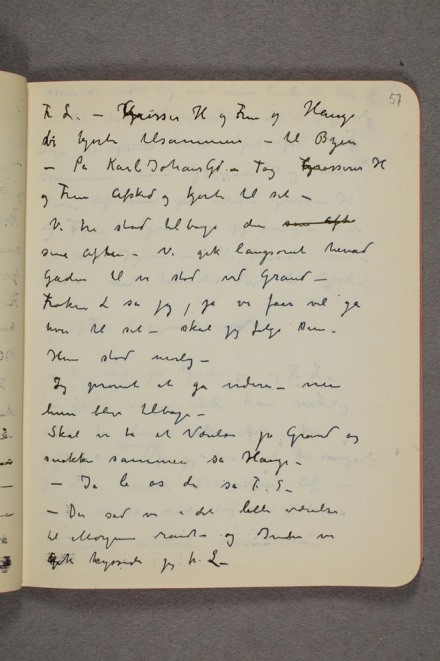 57
Fr L. – Grosserer H og Frue og Hauge
kjørte tilsammen – til Byen
– På Karl Johans Gd – tog Grosserer H
og Frue Afsked og kjørte til sit –
Vi tre stod tilbage den
sene Aften – Vi gik langsomt henad
Gaden til vi stod ved Grand –
Frøken L sa jeg, ja vi faar vel ga
hver til sit – skal jeg følge Dem –
Hun stod urolig –
Jeg prøvet at ga videre – men
hun blev tilbage –
Skal vi ta et Værelse på Grand og
snakke sammen sa Hauge –
– Ja la os da sa F. L –
– Der sad vi i det lille værelse
til Morgenen – og Inden vi
gik kyssede jeg fr. L –